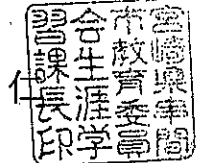 宮崎県串間
市教育委員
会生涯学
習課長印
仁